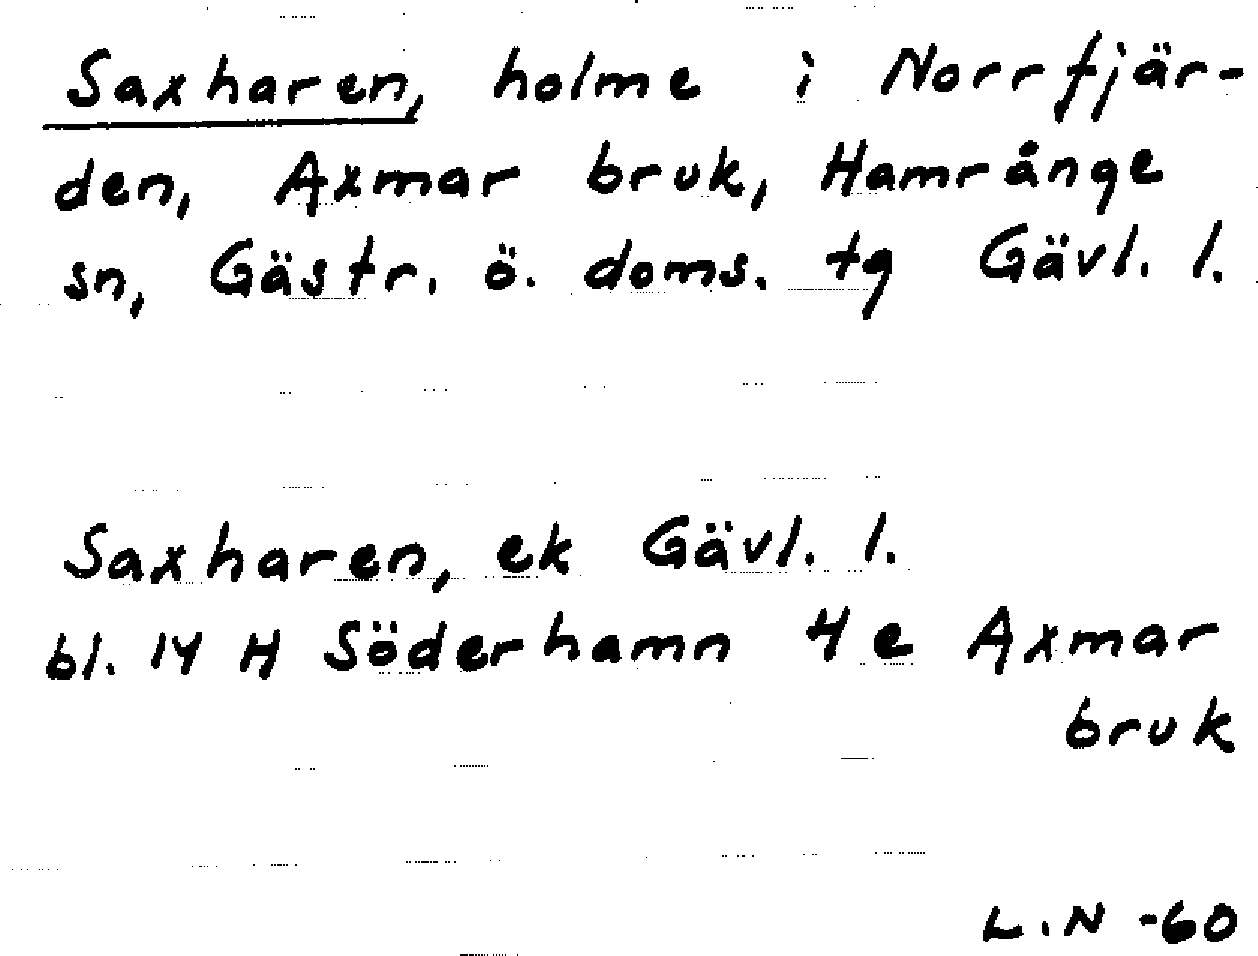 Saxharen, holme i Norrfjär-
den, Axmar bruk, Hamrånge
sn, Gästr. ö. doms. tg Gävl. l.
Saxharen, ek Gävl. l.
bl. 14 H Söderhamn 4e Axmar
bruk
L.N -60